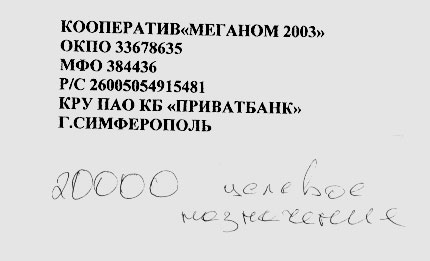 КООПЕРАТИВ«МЕГАНОМ 2003»
ОКПО 33678635
МФО 384436
Р/С 26005054915481
КРУ ПАО КБ «ПРИВАТБАНК»
Г.СИМФЕРОПОЛЬ
20000 целевое
назначение